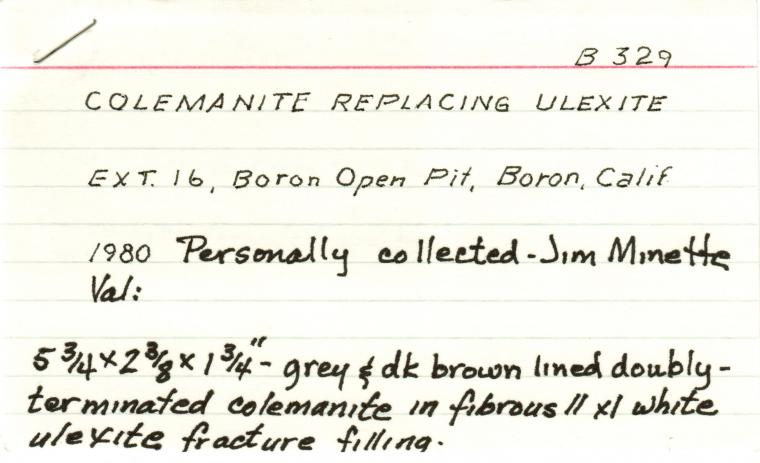 B 329
COLEMANITE REPLACING ULEXITE
EXT. 16, Boron Open Pit, Boron, Calif
1980 Personally collected - Jim Minette
Val:
5 3/4 x 2 3/8 x 1 3/4" - grey & dk brown lined doubly-
terminated colemanite in fibrous // xl white
ulexite fracture filling.